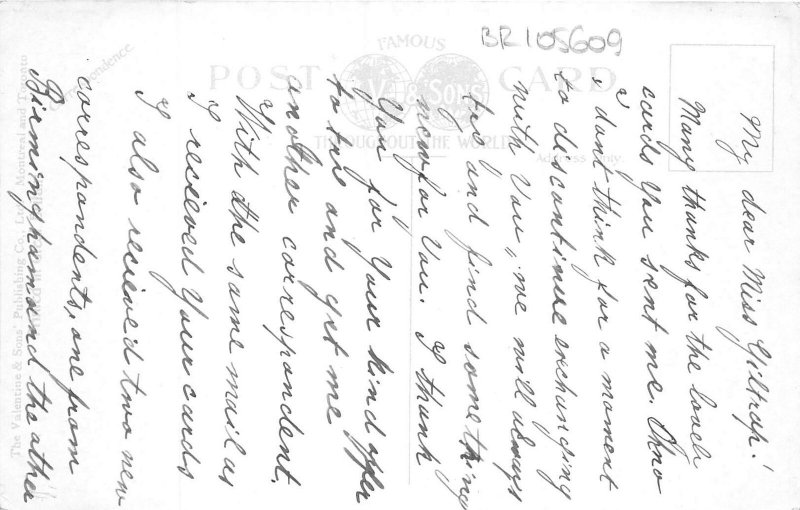 BR105609
FAMOUS
POST CARD
V. & SONS
THROUGHOUT THE WORLD
Address Only
The Valentine & Sons' Publishing Co., Ltd., Montreal and Toronto
My dear Miss Giltrap!
Many thanks for the loach
cards you sent me. Ohno
I dont think for a moment
to descontinue exchanging
with you, we will always
try and find something
new for you. I thank
you for your kind offer
to try and get me
another correspondent.
With the same mail as
I recieved your cards
I also recieved two new
correspondents, one from
Birmingham and the other